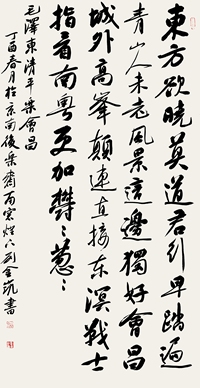 東方欲曉莫道君行早踏遍
青山人未老風景這邊獨好會昌
城外高峯顛連直接东溟戰士
指看南粤更加鬱〻葱〻
毛澤東清平樂會昌
丁酉春月於京南後樂齋雨窗燈下金凱書